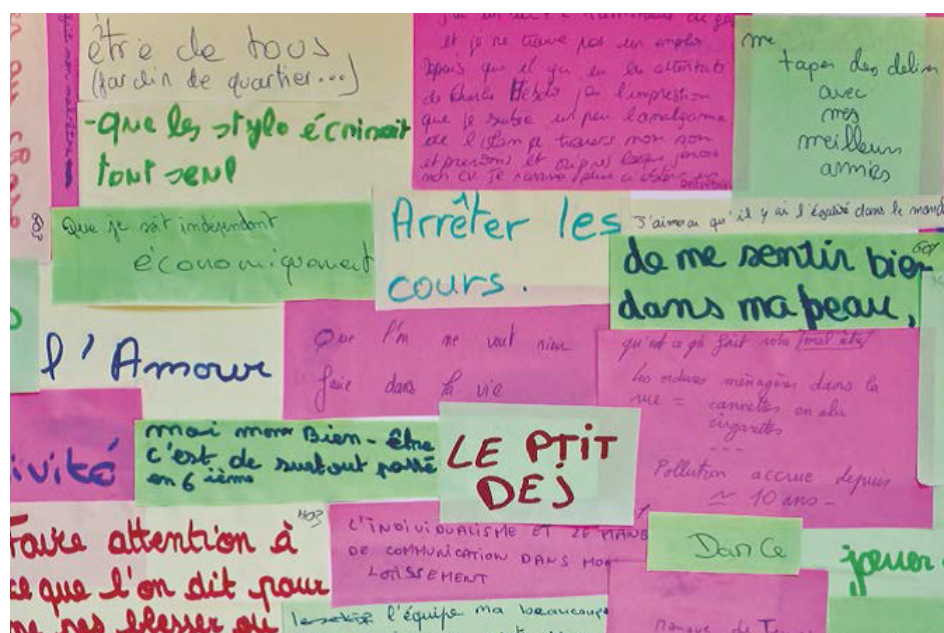 être de tous
(jardin de quartier...)
-que les stylo écrirait
tout seul
et je ne trouve pas un emploi
Depuis que il y a eu les attentats
de Charlie Hebdo j'ai l'impression
que je subis un peu l'amalgame
de l'islam a travers mon nom
et prénom et
mon CV je n'arrive plus a
me
taper des délires
avec
mes
meilleurs
amies
Que je soit indépendant
économiquement
Arrêter les
cours.
J'aimerai qu'il y ai l'égalité dans le mond
de me sentir bien
dans ma peau,
l'Amour
Que l'on ne veut rien
faie dans la vie
qu'est ce qui fait votre mal être
Les ordures ménagères dans la
rue = cannettes en alu
cigarettes
---
Pollution accrue depuis
≃ 10 ans -
ivité
moi mon Bien-être
c'est de surtout passé
en 6 ième
LE PTIT
DEJ
Faire attention à
ce que l'on dit pour
ne pas blesser ou
403
L'INDIVIDUALISME ET
DE COMMUNICATION DANS MON
LOTISSEMENT
Dance
jouer
l'équipe ma beaucoup
manque de